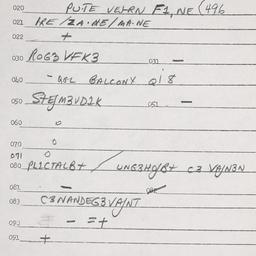 020 PUTE VELRN F1, NE (496
021 IRE / ZA·NE / MA·NE
022 +
030 ROG3 VFK3 031 –
040 - GEL BALCONY Q18
050 STEJM3VD1K 051 –
060 o
070 o
071 o
080 PLICTALB+ / UNG3HO/B+ C3 VA/N3N
081 –
083 C3NANDEG3VA/NT
090 – =+
091 +